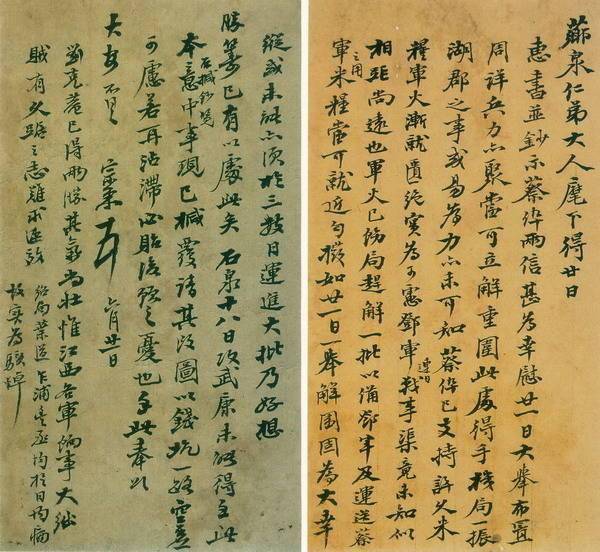 薌泉仁弟大人麾下得廿日
惠書並鈔示蔡倅兩信甚為幸慰廿一日大舉布置
周詳兵力亦聚當可立解重圍此處得手機局一振
湖郡之事或易為力亦未可知蔡倅已支持許久米
糧軍火漸就匱絕實為可慮鄧軍連日戰事渠竟未知似
相距尚遠也軍火已飭局趕解一批以備鄧軍及運送蔡
軍之用米糧當可就近勻撥如廿一日一舉解圍固為大幸
縱或未能亦須於三數日運進大批乃好想
勝籌已有以處此矣石泉十八日攻武康未能得手此
本意中事現已械覆請其改圖以錢坑一路空虛
石械鈔覽
可慮若再沾滯必貽後路之憂也手此奉
大安不具宗棠六月廿一日
劉克菴已得兩勝其氣尚壯惟江西各軍餉事大絀
賊有久踞之志難求速效
紹局葉道乍浦均於日
實為駭